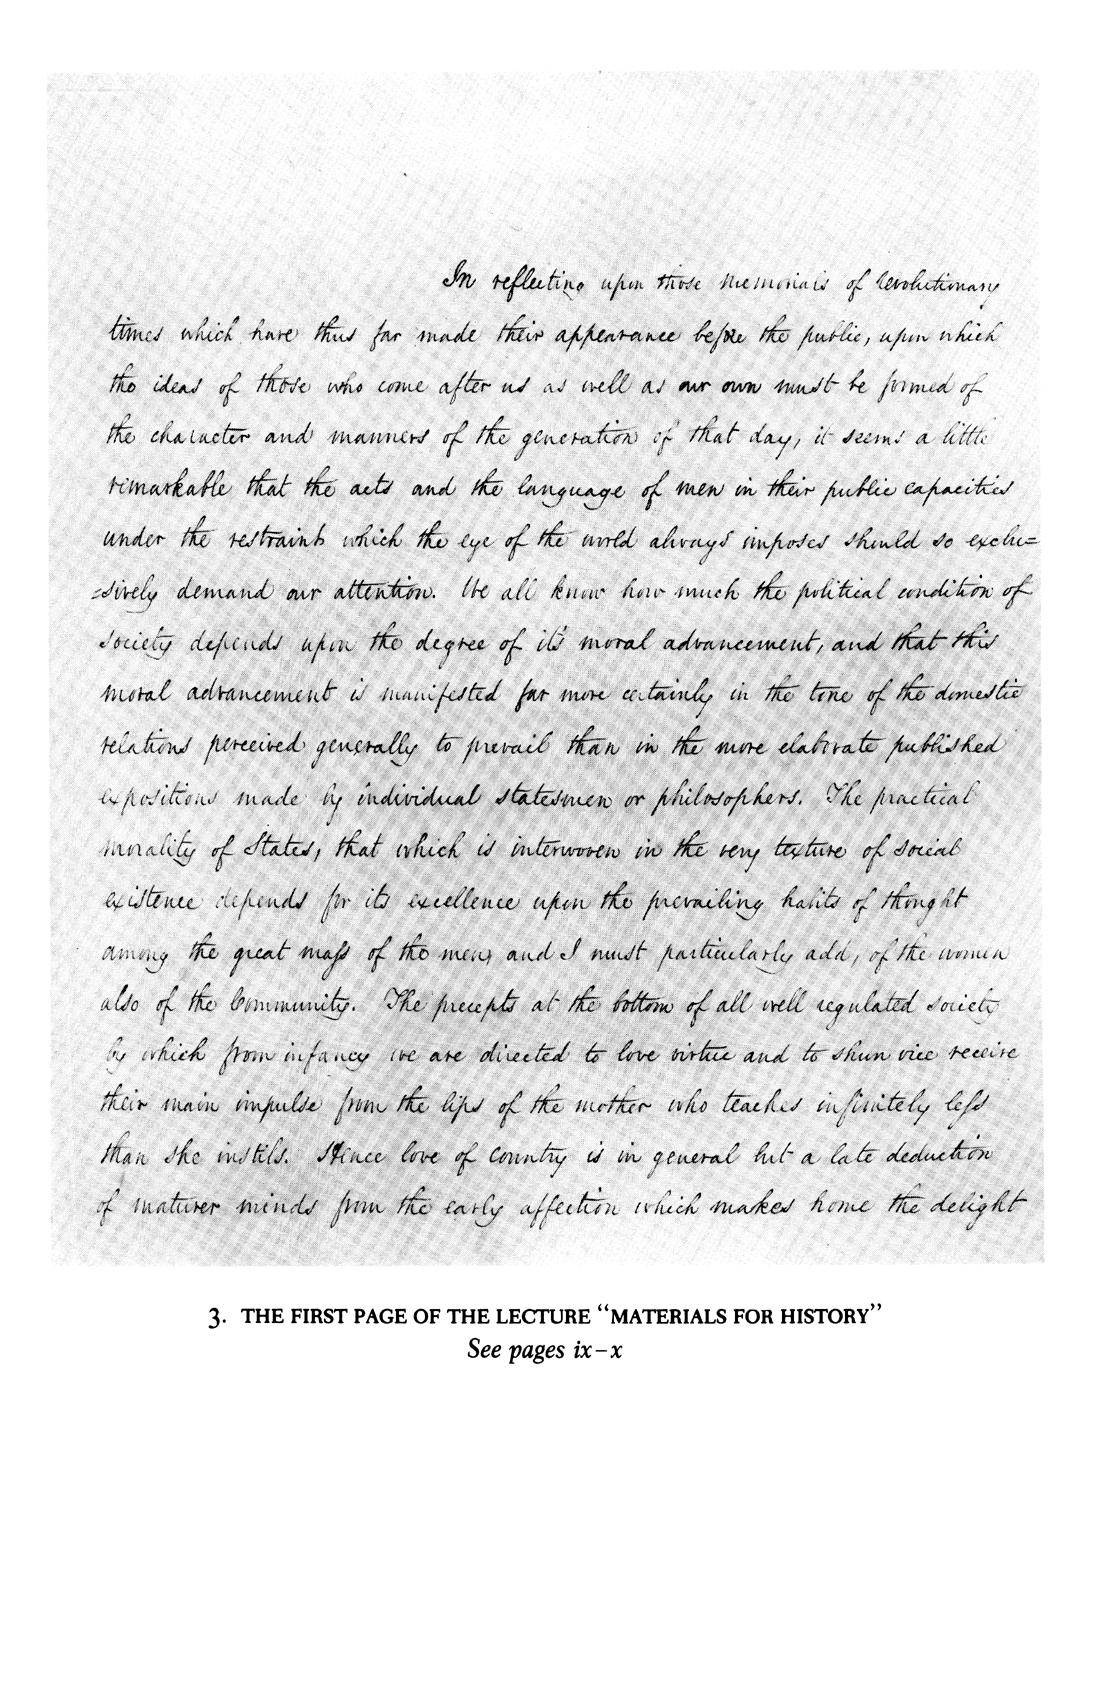 In reflecting upon those memorials of revolutionary
times which have thus far made their appearance before the public, upon which
the ideas of those who come after us as well as our own must be formed of
the character and manners of the generation of that day, it seems a little
remarkable that the acts and the language of men in their public capacities
under the restraints which the eye of the world always imposes should so exclu=
=sively demand our attention. We all know how much the political condition of
society depends upon the degree of it's moral advancement, and that this
moral advancement is manifested far more certainly in the tone of the domestic
relations perceived generally to prevail than in the more elaborate published
expositions made by individual statesmen or philosophers. The practical
morality of States, that which is interwoven in the very texture of social
existence depends for its excellence upon the prevailing habits of thought
among the great mass of the men, and I must particularly add, of the women
also of the Community. The precepts at the bottom of all well regulated society
by which from infancy we are directed to love virtue and to shun vice receive
their main impulse from the lips of the mother who teaches infinitely less
than she instils. Hence love of country is in general but a late deduction
of maturer minds from the early affection which makes home the delight
3. THE FIRST PAGE OF THE LECTURE “MATERIALS FOR HISTORY”
See pages ix–x